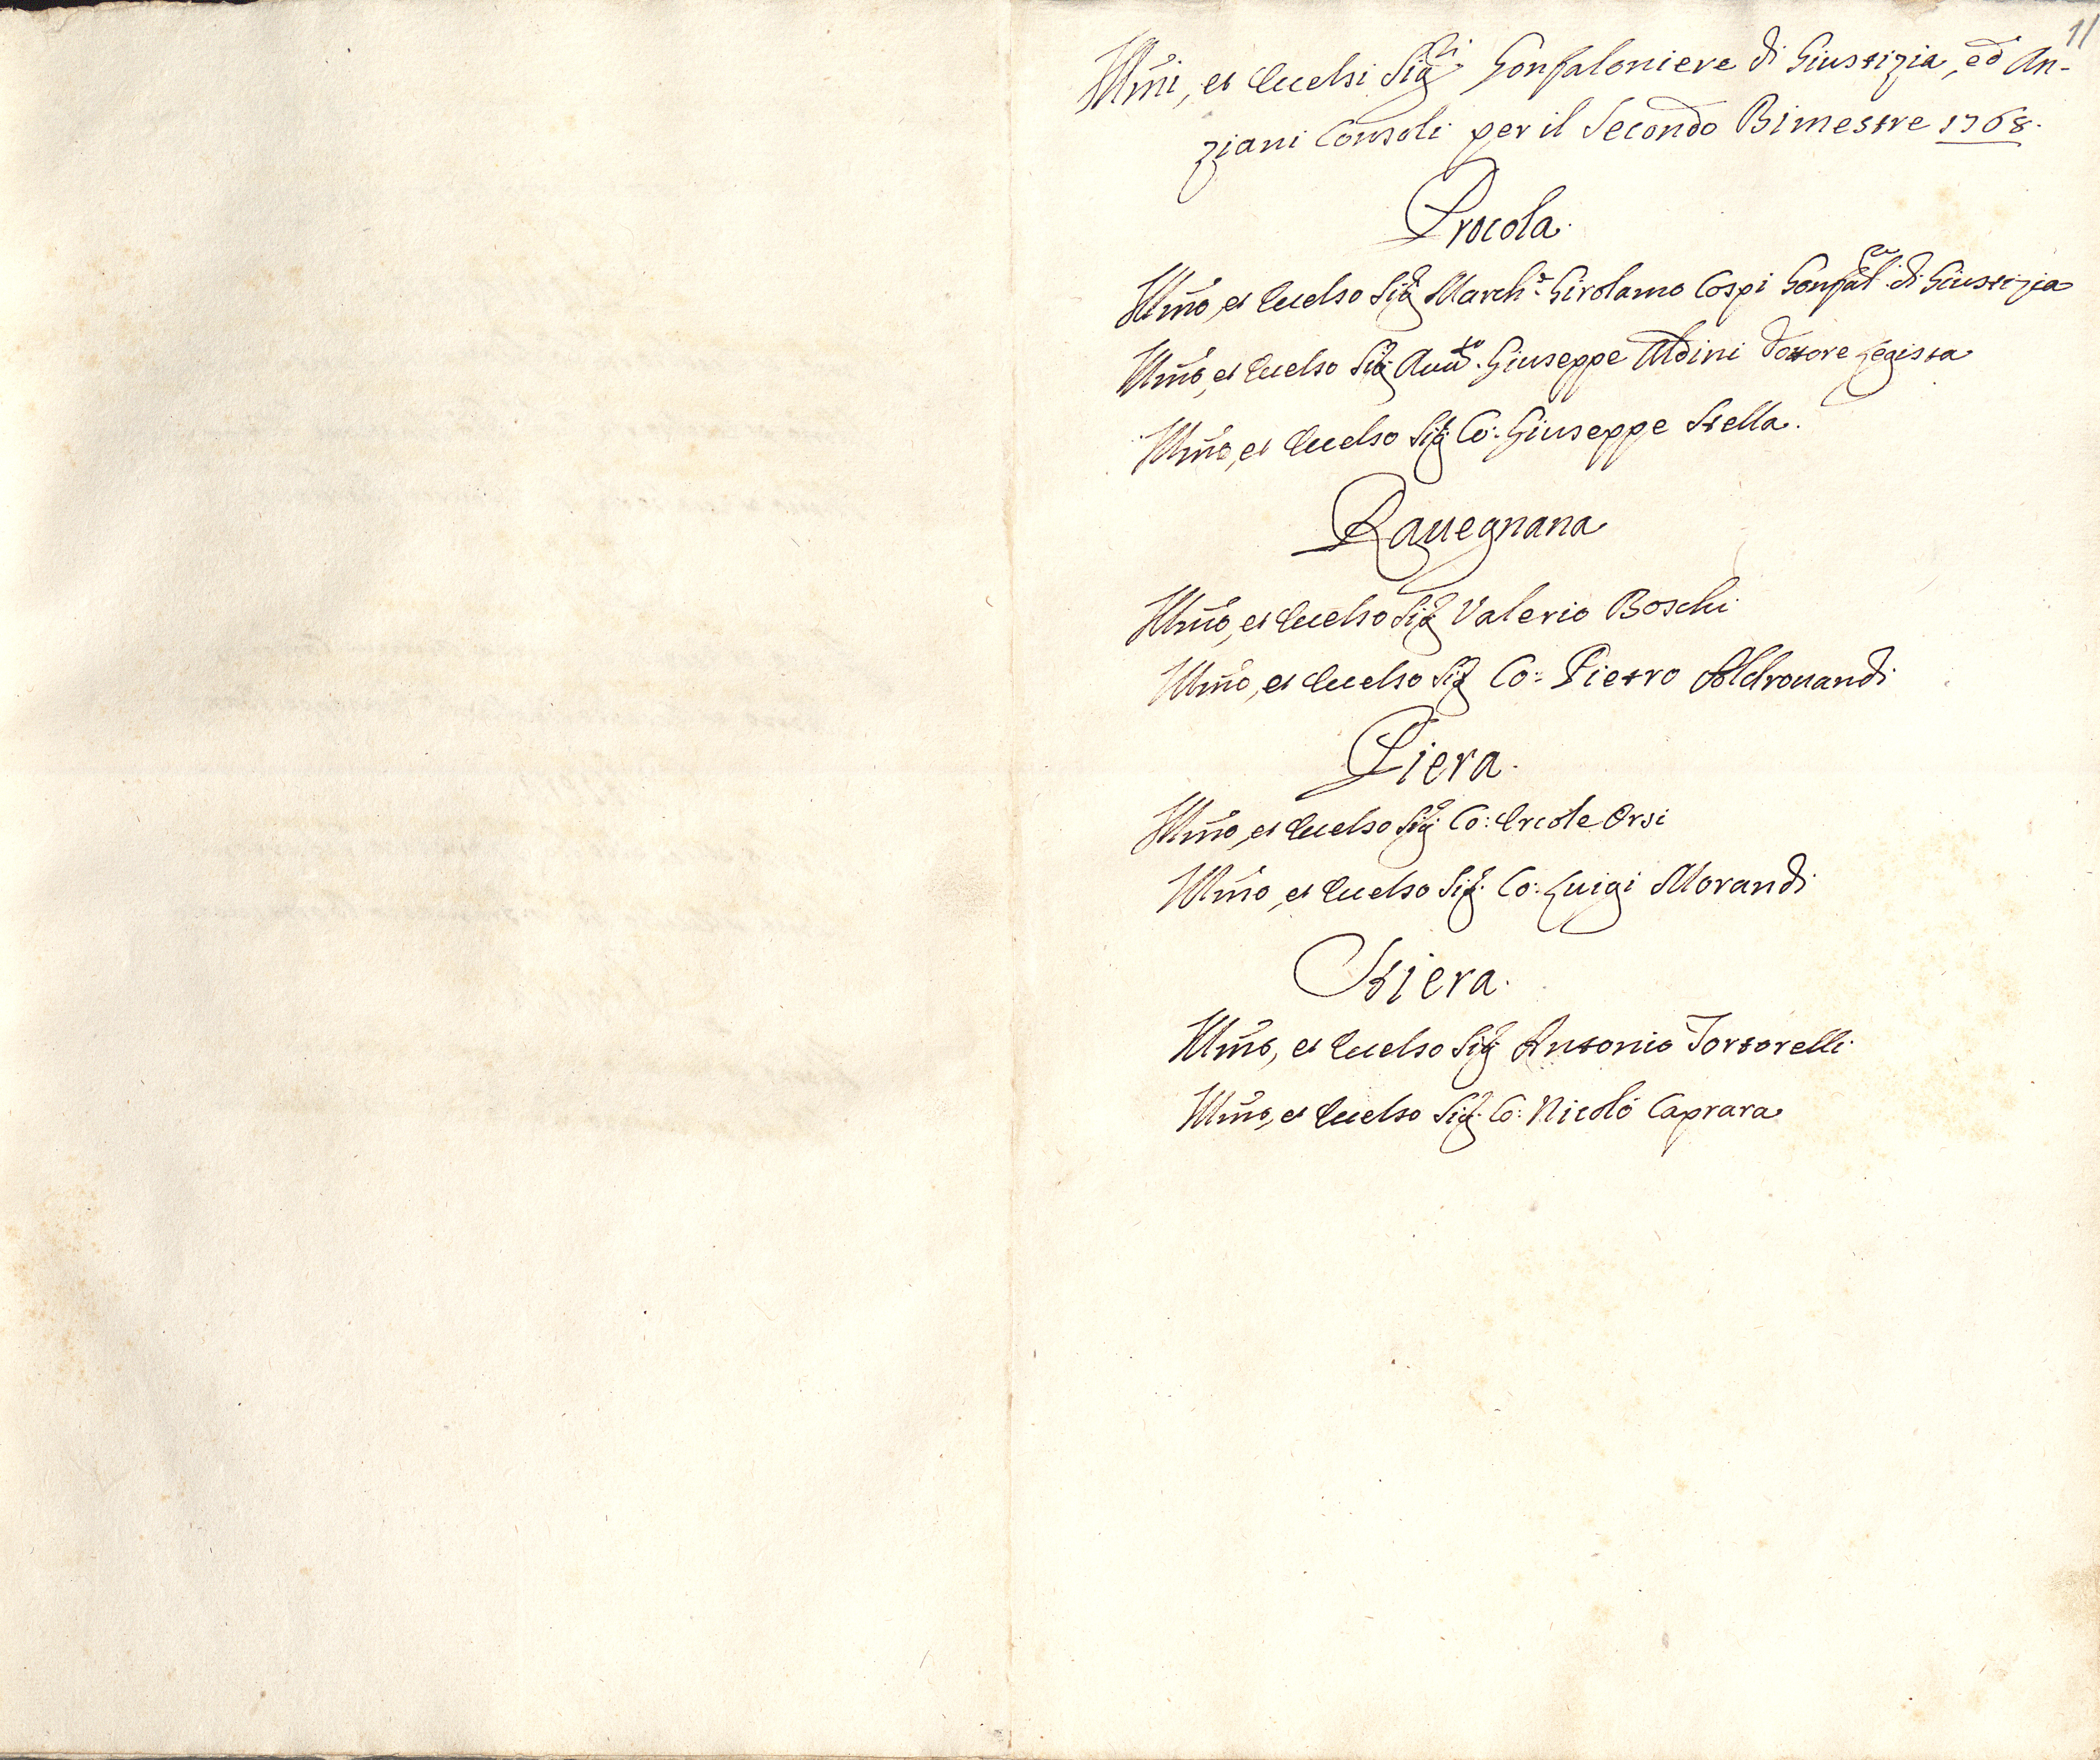 11
Illmi, et Eccelsi Sigri Gonfaloniere di Giustizia, ed An-
ziani Consoli per il Secondo Bimestre 1768.
Procola.
Illmo, et Eccelso Sig. March.e Girolamo Cospi Gonfal.re di Giustizia
Illmo, et Eccelso Sig. Avv.to Giuseppe Aldini Dottore Legista
Illmo, et Eccelso Sig. Co: Giuseppe Stella.
Ravegnana
Illmo, et Eccelso Sig. Valerio Boschi
Illmo, et Eccelso Sig. Co: Pietro Aldrovandi
Piera.
Illmo, et Eccelso Sig. Co: Ercole Orsi
Illmo, et Eccelso Sig. Co: Luigi Morandi
Stiera.
Illmo, et Eccelso Sig. Antonio Tortorelli
Illmo, et Eccelso Sig. Co: Nicolò Caprara